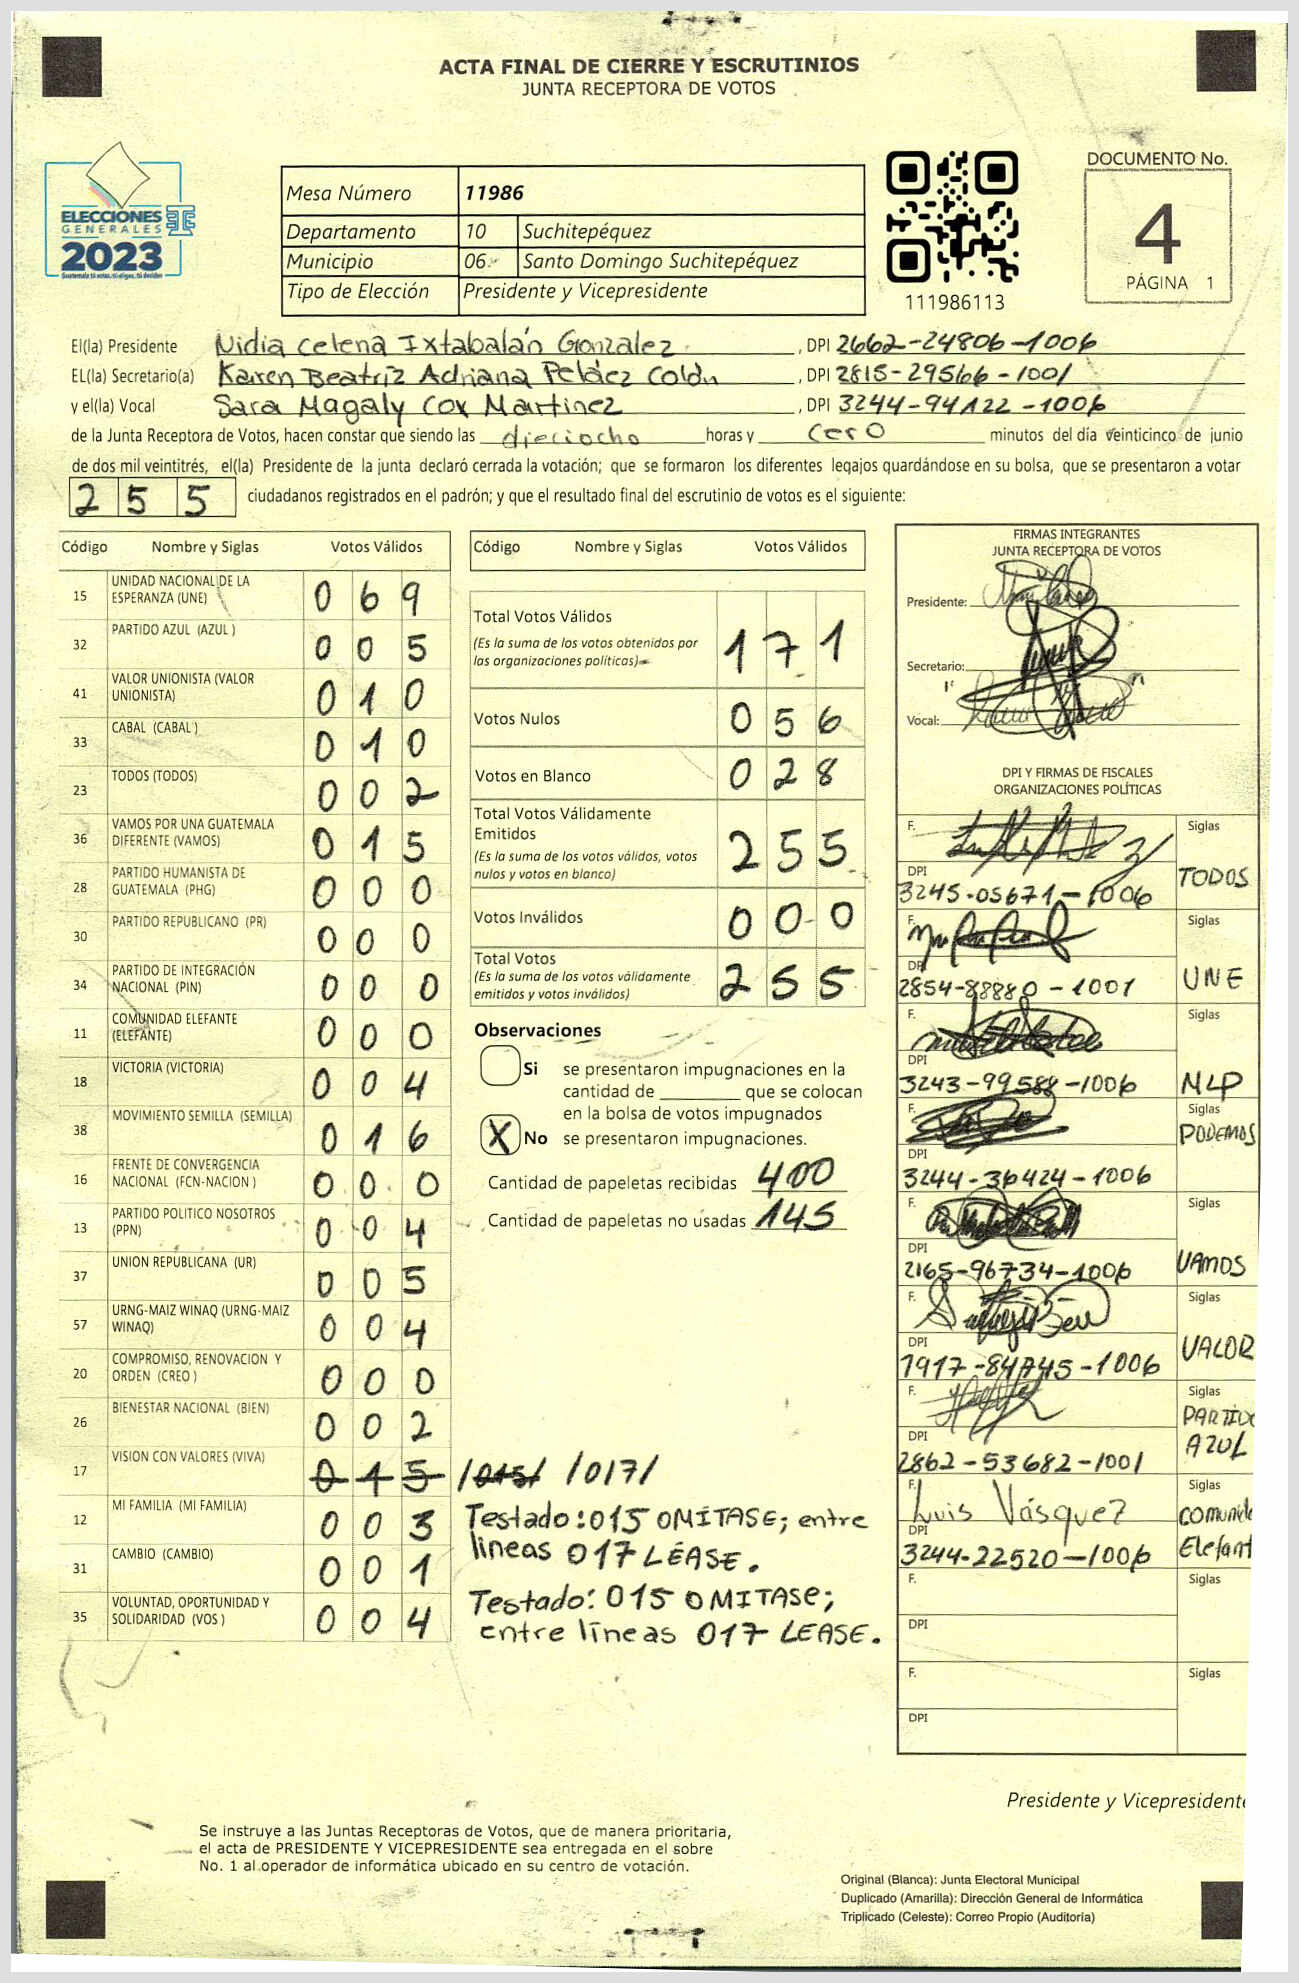 ACTA FINAL DE CIERRE Y ESCRUTINIOS
JUNTA RECEPTORA DE VOTOS
ELECCIONES
GENERALES
2023
Guatemala tú votas, tú eliges, tú decides
Mesa Número 11986
Departamento 10 Suchitepéquez
Municipio 06 Santo Domingo Suchitepéquez
Tipo de Elección Presidente y Vicepresidente
111986113
DOCUMENTO No.
4
PÁGINA 1
El(la) Presidente Nidia Celena Ixtabalán Gonzalez, DPI 2662-24806-1006
EL(la) Secretario(a) Karen Beatriz Adriana Peláez Colón, DPI 2815-29566-1001
y el(la) Vocal Sara Magaly Cox Martinez, DPI 3244-94122-1006
de la Junta Receptora de Votos, hacen constar que siendo las dieciocho horas y cero minutos del día veinticinco de junio
de dos mil veintitrés, el(la) Presidente de la junta declaró cerrada la votación; que se formaron los diferentes legajos guardándose en su bolsa, que se presentaron a votar
255 ciudadanos registrados en el padrón; y que el resultado final del escrutinio de votos es el siguiente:
Código Nombre y Siglas Votos Válidos
15 UNIDAD NACIONAL DE LA ESPERANZA (UNE) 069
32 PARTIDO AZUL (AZUL ) 005
41 VALOR UNIONISTA (VALOR UNIONISTA) 010
33 CABAL (CABAL ) 010
23 TODOS (TODOS) 002
36 VAMOS POR UNA GUATEMALA DIFERENTE (VAMOS) 015
28 PARTIDO HUMANISTA DE GUATEMALA (PHG) 000
30 PARTIDO REPUBLICANO (PR) 000
34 PARTIDO DE INTEGRACIÓN NACIONAL (PIN) 000
11 COMUNIDAD ELEFANTE (ELEFANTE) 000
18 VICTORIA (VICTORIA) 004
38 MOVIMIENTO SEMILLA (SEMILLA) 016
16 FRENTE DE CONVERGENCIA NACIONAL (FCN-NACION ) 000
13 PARTIDO POLITICO NOSOTROS (PPN) 004
37 UNION REPUBLICANA (UR) 005
57 URNG-MAIZ WINAQ (URNG-MAIZ WINAQ) 004
20 COMPROMISO, RENOVACION Y ORDEN (CREO ) 000
26 BIENESTAR NACIONAL (BIEN) 002
17 VISION CON VALORES (VIVA) 015 /015/ /017/
12 MI FAMILIA (MI FAMILIA) 003
31 CAMBIO (CAMBIO) 001
35 VOLUNTAD, OPORTUNIDAD Y SOLIDARIDAD (VOS ) 004
Código Nombre y Siglas Votos Válidos
Total Votos Válidos 171
(Es la suma de los votos obtenidos por
las organizaciones políticas)
Votos Nulos 056
Votos en Blanco 028
Total Votos Válidamente
Emitidos 255
(Es la suma de los votos válidos, votos
nulos y votos en blanco)
Votos Inválidos 000
Total Votos 255
(Es la suma de los votos válidamente
emitidos y votos inválidos)
Observaciones
Si se presentaron impugnaciones en la
cantidad de ________ que se colocan
en la bolsa de votos impugnados
X No se presentaron impugnaciones.
Cantidad de papeletas recibidas 400
Cantidad de papeletas no usadas 145
Testado: 015 OMÍTASE; entre
lineas 017 LÉASE.
Testado: 015 OMITASE;
entre líneas 017 LEASE.
FIRMAS INTEGRANTES
JUNTA RECEPTORA DE VOTOS
Presidente:
Secretario:
Vocal:
DPI Y FIRMAS DE FISCALES
ORGANIZACIONES POLÍTICAS
F. Siglas
DPI TODOS
3245-05671-1006
F. Siglas
DPI UNE
2854-88880-1001
F. Siglas
DPI MLP
3243-99588-1006
F. Siglas
PODEMOS
DPI
3244-36424-1006
F. Siglas
DPI VAMOS
2165-96734-1006
F. Siglas
DPI VALOR
1917-84745-1006
F. Siglas
PARTIDO
DPI AZUL
2862-53682-1001
F. Luis Vásquez Siglas
DPI Comunid
3244-22520-1006 Elefant
F. Siglas
DPI
F. Siglas
DPI
Presidente y Vicepresidente
Se instruye a las Juntas Receptoras de Votos, que de manera prioritaria,
el acta de PRESIDENTE Y VICEPRESIDENTE sea entregada en el sobre
No. 1 al operador de informática ubicado en su centro de votación.
Original (Blanca): Junta Electoral Municipal
Duplicado (Amarilla): Dirección General de Informática
Triplicado (Celeste): Correo Propio (Auditoría)